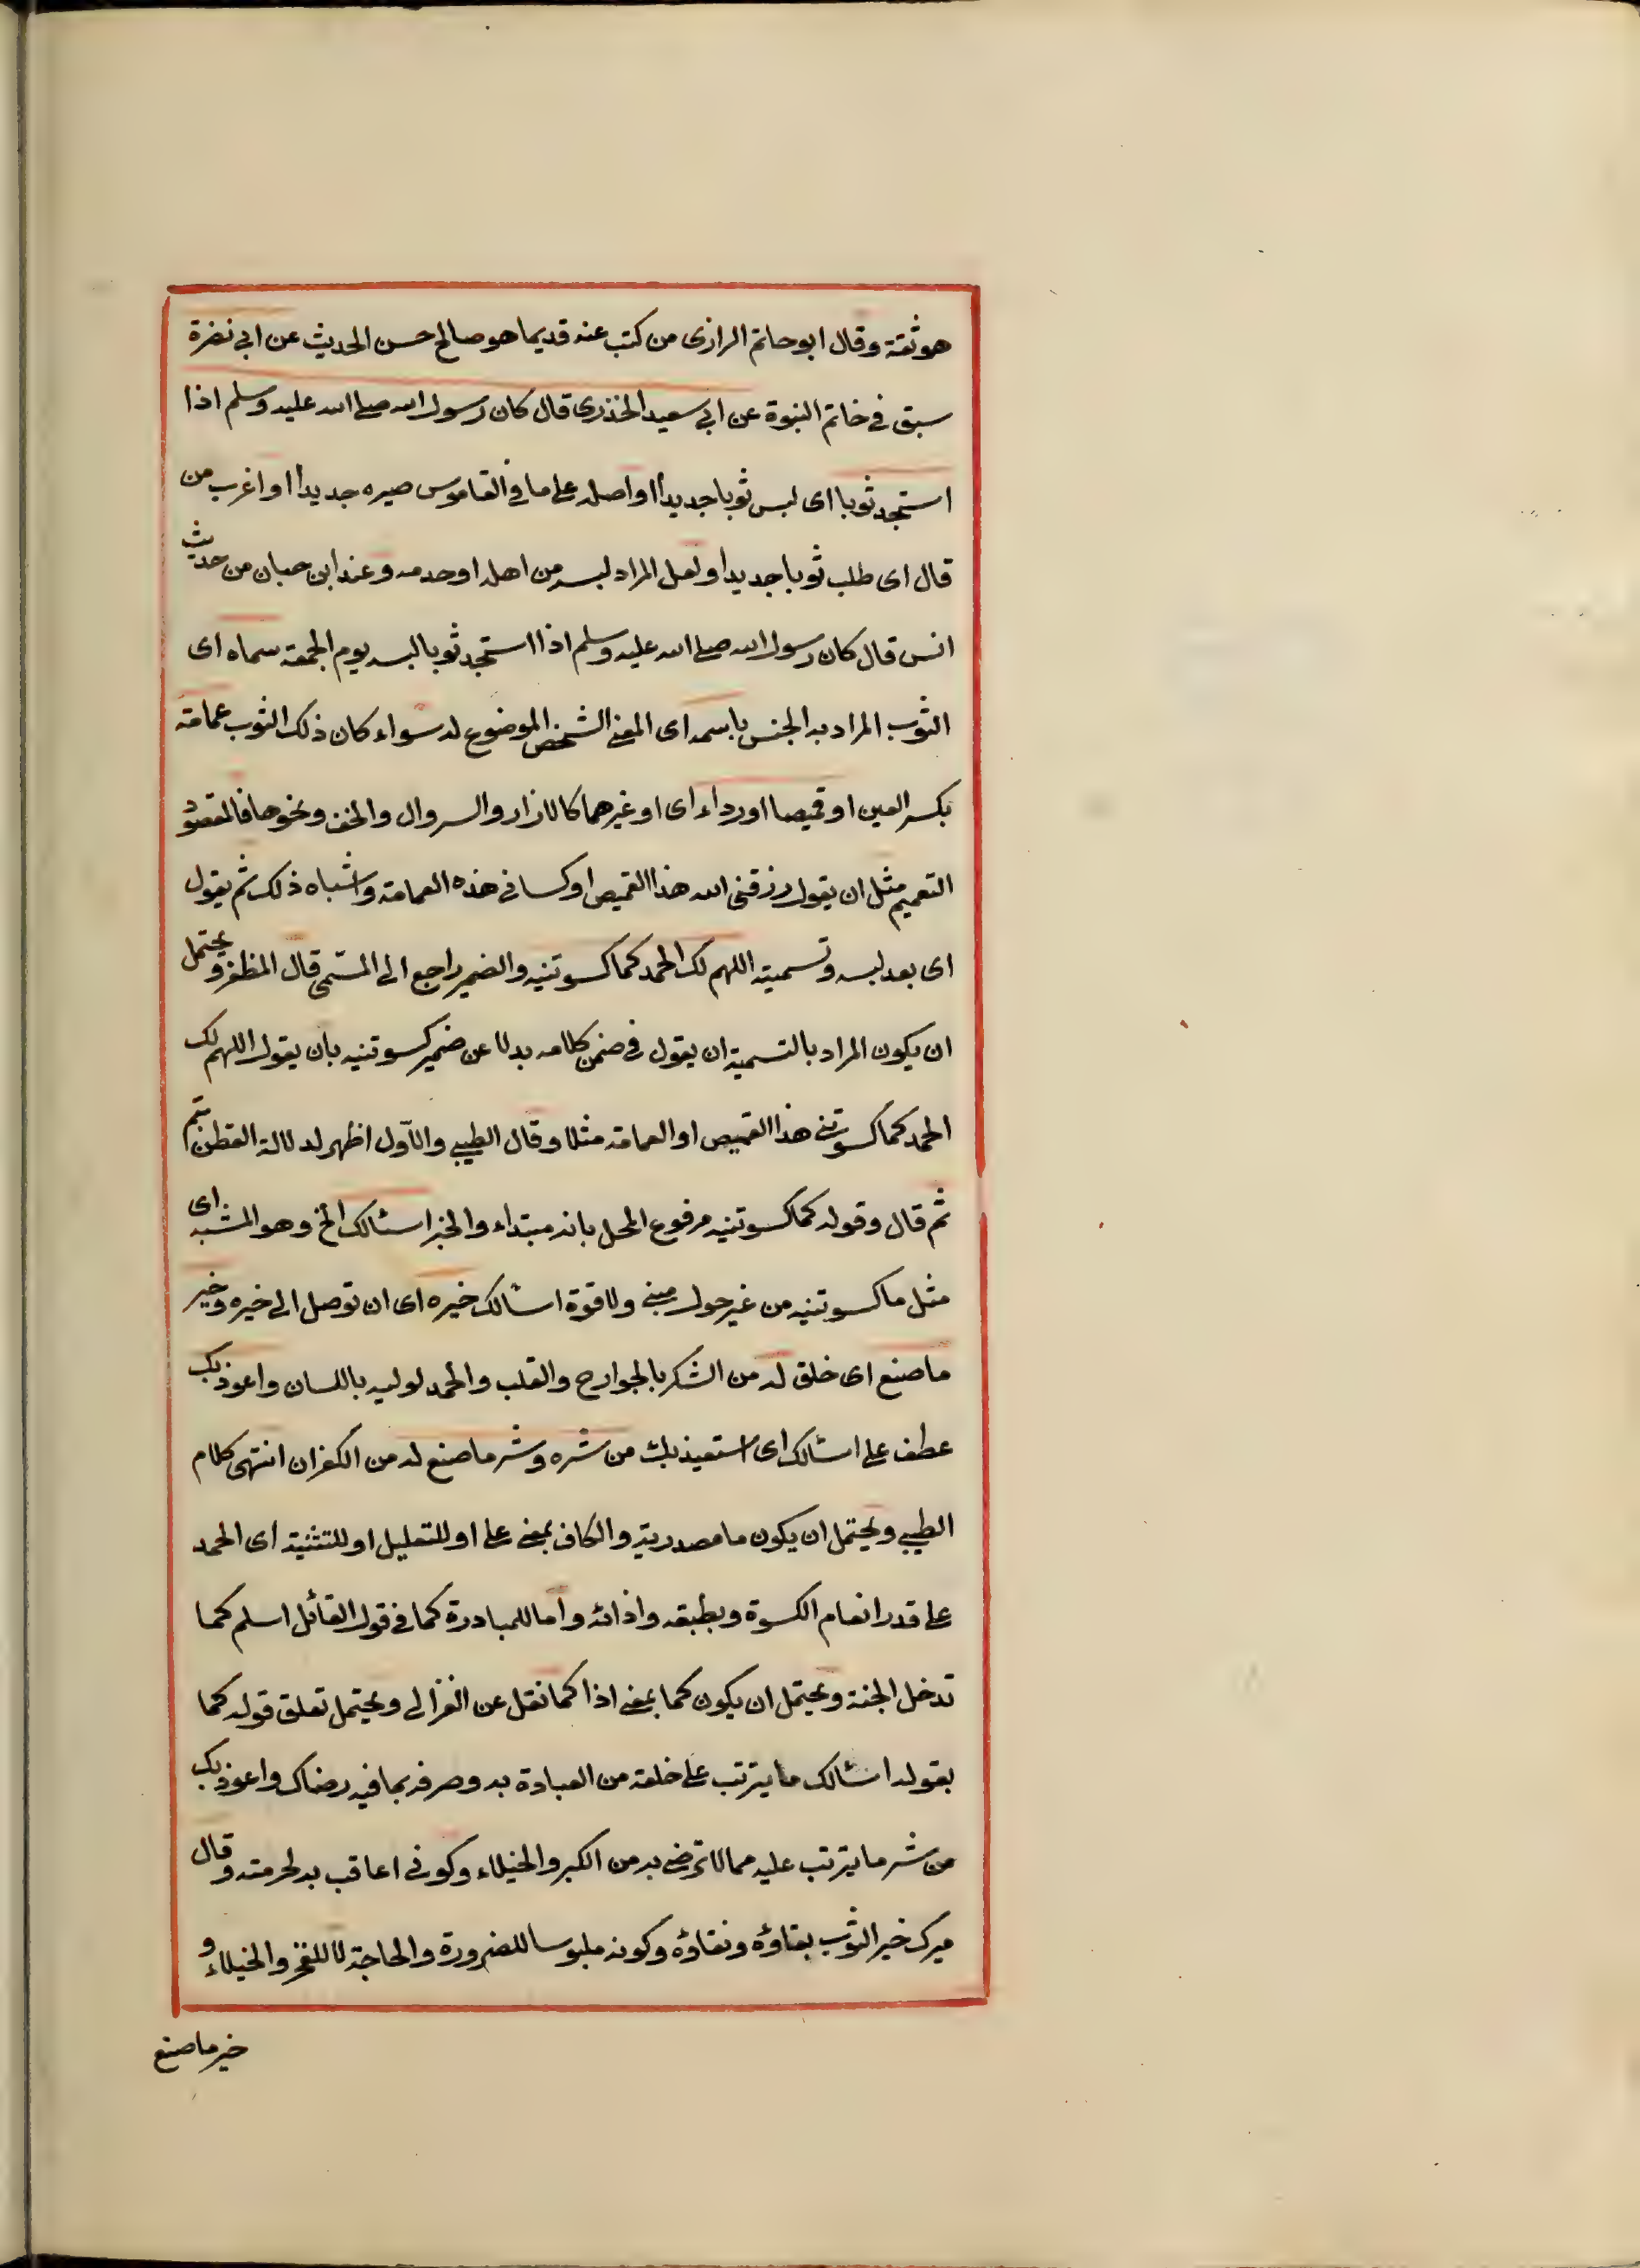 هو ثقة وقال ابو حاتم الرازى من كتب عنه قديما هو صالح حسن الحديث عن ابي نضرة
سبق في خاتم النبوة عن ابي سعيد الخذرى قال كان رسول الله صلى الله عليه وسلم اذا
استجد ثوبا اى لبس ثوبا جديدا واصله على ما في القاموس صيره جديدا واغرب من
قال اى طلب ثوبا جديدا ولعل المراد لبسه من اهله او خدمه وعند ابن حبان من حديث
انس قال كان رسول الله صلى الله عليه وسلم اذا استجد ثوبا لبسه يوم الجمعة سماه اى
الثوب المراد به الجنس باسمه اى المعنى الشخص الموضوع له سواء كان ذلك الثوب عمامة
بكسر العين او قميصا او رداء اى او غيرهما كالازار والسروال والخف ونحوها فالمقصود
التعميم مثل ان يقول رزقنى الله هذا القميص او كسانى هذه العمامة واشباه ذلك ثم يقول
اى بعد لبسه وتسميته اللهم لك الحمد كما كسوتنيه والضمير راجع الى المسمى قال المظفر ويحتمل
ان يكون المراد بالتسمية ان يقول في ضمن كلامه بدلا عن ضمير كسوتنيه بان يقول اللهم لك
الحمد كما كسوتنى هذا القميص او العمامة مثلا وقال الطيبى والاول اظهر لدلالة العطف بثم
ثم قال وقوله كما كسوتنيه مرفوع المحل بانه مبتداء والخبر اسئالك الخ وهو المشبه اى
مثل ما كسوتنيه من غير حول منى ولا قوة اسئالك خيره اى ان توصل الى خيره وخير
ما صنع اى خلق له من الشكر بالجوارح والقلب والحمد لوليه باللسان واعوذ بك
عطف على اسئالك اى استعيذ بك من شره وشر ما صنع له من الكفران انتهى كلام
الطيبى ويحتمل ان يكون ما مصدرية والكاف بمعنى على او للتعليل او للتشبيه اى الحمد
على قدر انعام الكسوة وبطبقه واذائه واما للمبادرة كما في قول القائل اسلم كما
تدخل الجنة ويحتمل ان يكون كما بمعنى اذا كما نقل عن الغزالى ويحتمل تعلق قوله كما
بقوله اسئالك ما يترتب على خلقه من العبادة به وصرفه بما فيه رضاك واعوذ بك
من شر ما يترتب عليه مما لا ترضى به من الكبر والخيلاء وكونى اعاقب به لحرمته وقال
ميرك خير الثوب بقاؤه ونقاؤه وكونه ملبوسا للضرورة والحاجة لا للفخر والخيلاء و
خير ما صنع